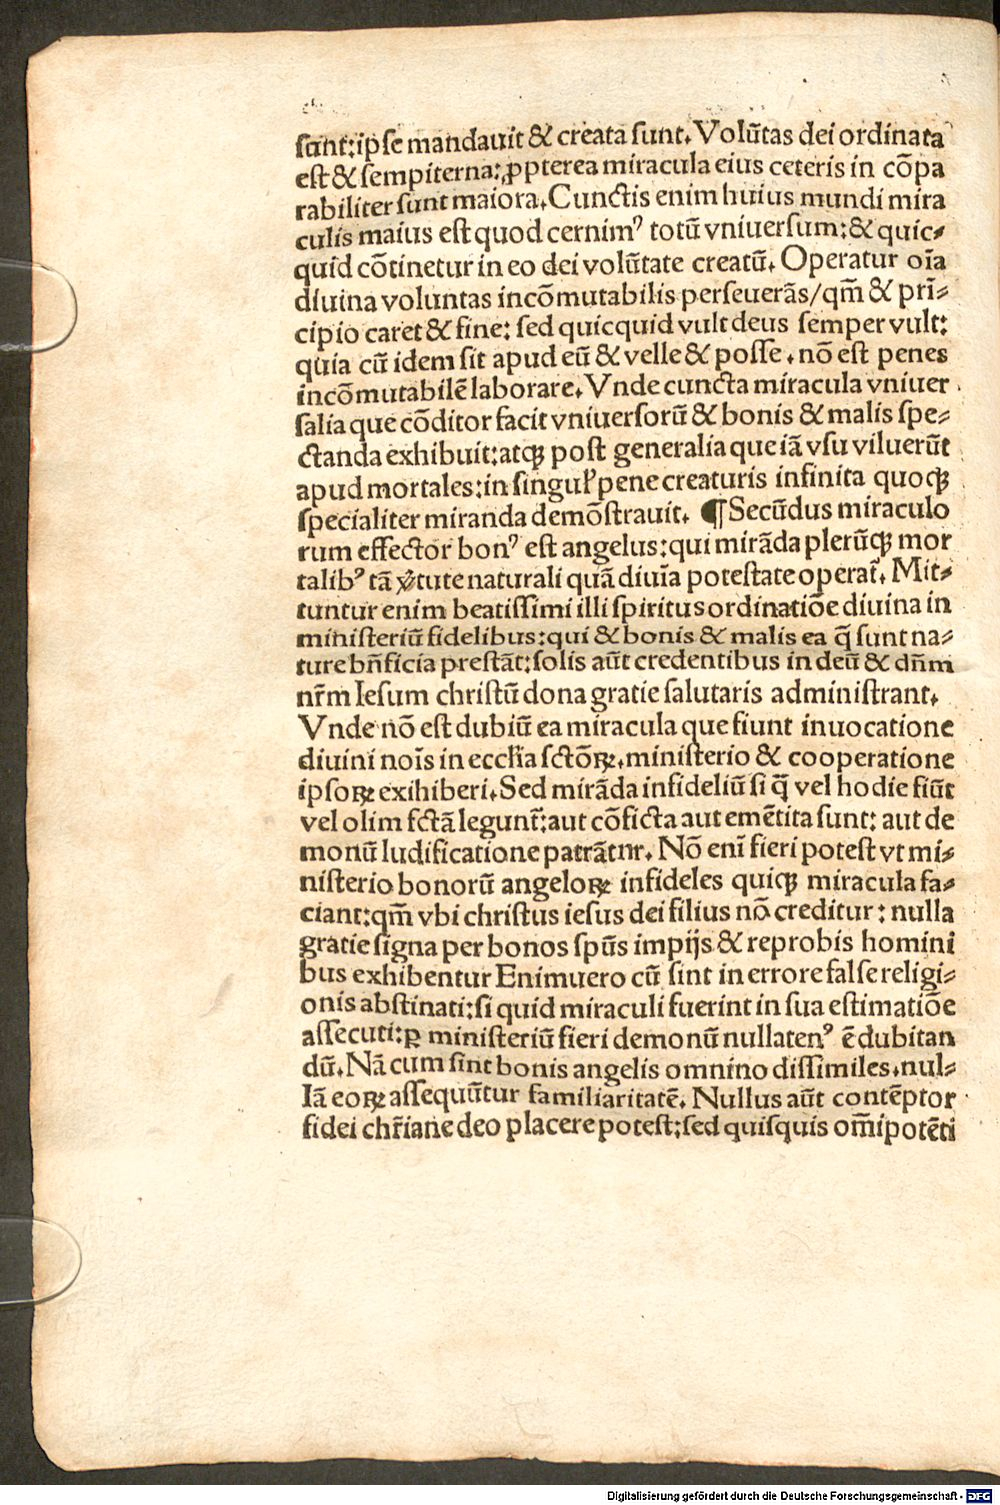 sunt:ipse mandauit & creata sunt. Volūtas dei ordinata
est & sempiterna: ꝓpterea miracula eius ceteris in cōpa
rabiliter sunt maiora. Cunctis enim huius mundi mira
culis maius est quod cernimꝰ totū vniuersum: & quic⸗
quid cōtinetur in eo dei volūtate creatū. Operatur oīa
diuina voluntas incōmutabilis perseuerās/qm̄ & prī⸗
cipio caret & fine: sed quicquid vult deus semper vult:
quia cū idem sit apud eū & velle & posse . nō est penes
incōmutabilē laborare. Vnde cuncta miracula vniuer
salia que cōditor facit vniuersorū & bonis & malis spe⸗
ctanda exhibuit: atqꝫ post generalia que iā vsu viluerūt
apud mortales: in singul̕ pene creaturis infinita quoqꝫ
specialiter miranda demōstrauit. ¶ Secūdus miraculo
rum effector bonꝰ est angelus: qui mirāda plerūqꝫ mor
talibꝰ tā v̓tute naturali quā diuīa potestate operat̄. Mit⸗
tuntur enim beatissimi illi spiritus ordinatiōe diuina in
ministeriū fidelibus: qui & bonis & malis ea q̄ sunt na⸗
ture bn̄ficia prestāt: solis aūt credentibus in deū & dn̄m
nr̄m Iesum christū dona gratie salutaris administrant.
Vnde nō est dubiū ea miracula que fiunt inuocatione
diuini noīs in ecclīa sctōꝝ. ministerio & cooperatione
ipsoꝝ exihiberi. Sed mirāda infideliū si q̄ vel hodie fiūt
vel olim fctā legunt̄: aut cōficta aut emētita sunt: aut de
monū ludificatione patrātnr. Nō enī fieri potest vt mi⸗
nisterio bonorū angeloꝝ infideles quiqꝫ miracula fa⸗
ciant: qm̄ vbi christus iesus dei filius nō creditur: nulla
gratie signa per bonos spūs impijs & reprobis homini
bus exhibentur Enimuero cū sint in errore false religi⸗
onis abstinati: si quid miraculi fuerint in sua estimatiōe
assecuti: ꝑ ministeriū fieri demonū nullatenꝰ ē dubitan
dū. Nā cum sint bonis angelis omnino dissimiles . nul⸗
lā eoꝝ assequūtur familiaritatē. Nullus aūt contēptor
fidei chr̄iane deo placere potest: sed quisquis om̄ipotēti
Digitalisierung gefördert durch die Deutsche Forschungsgemeinschaft - DFG